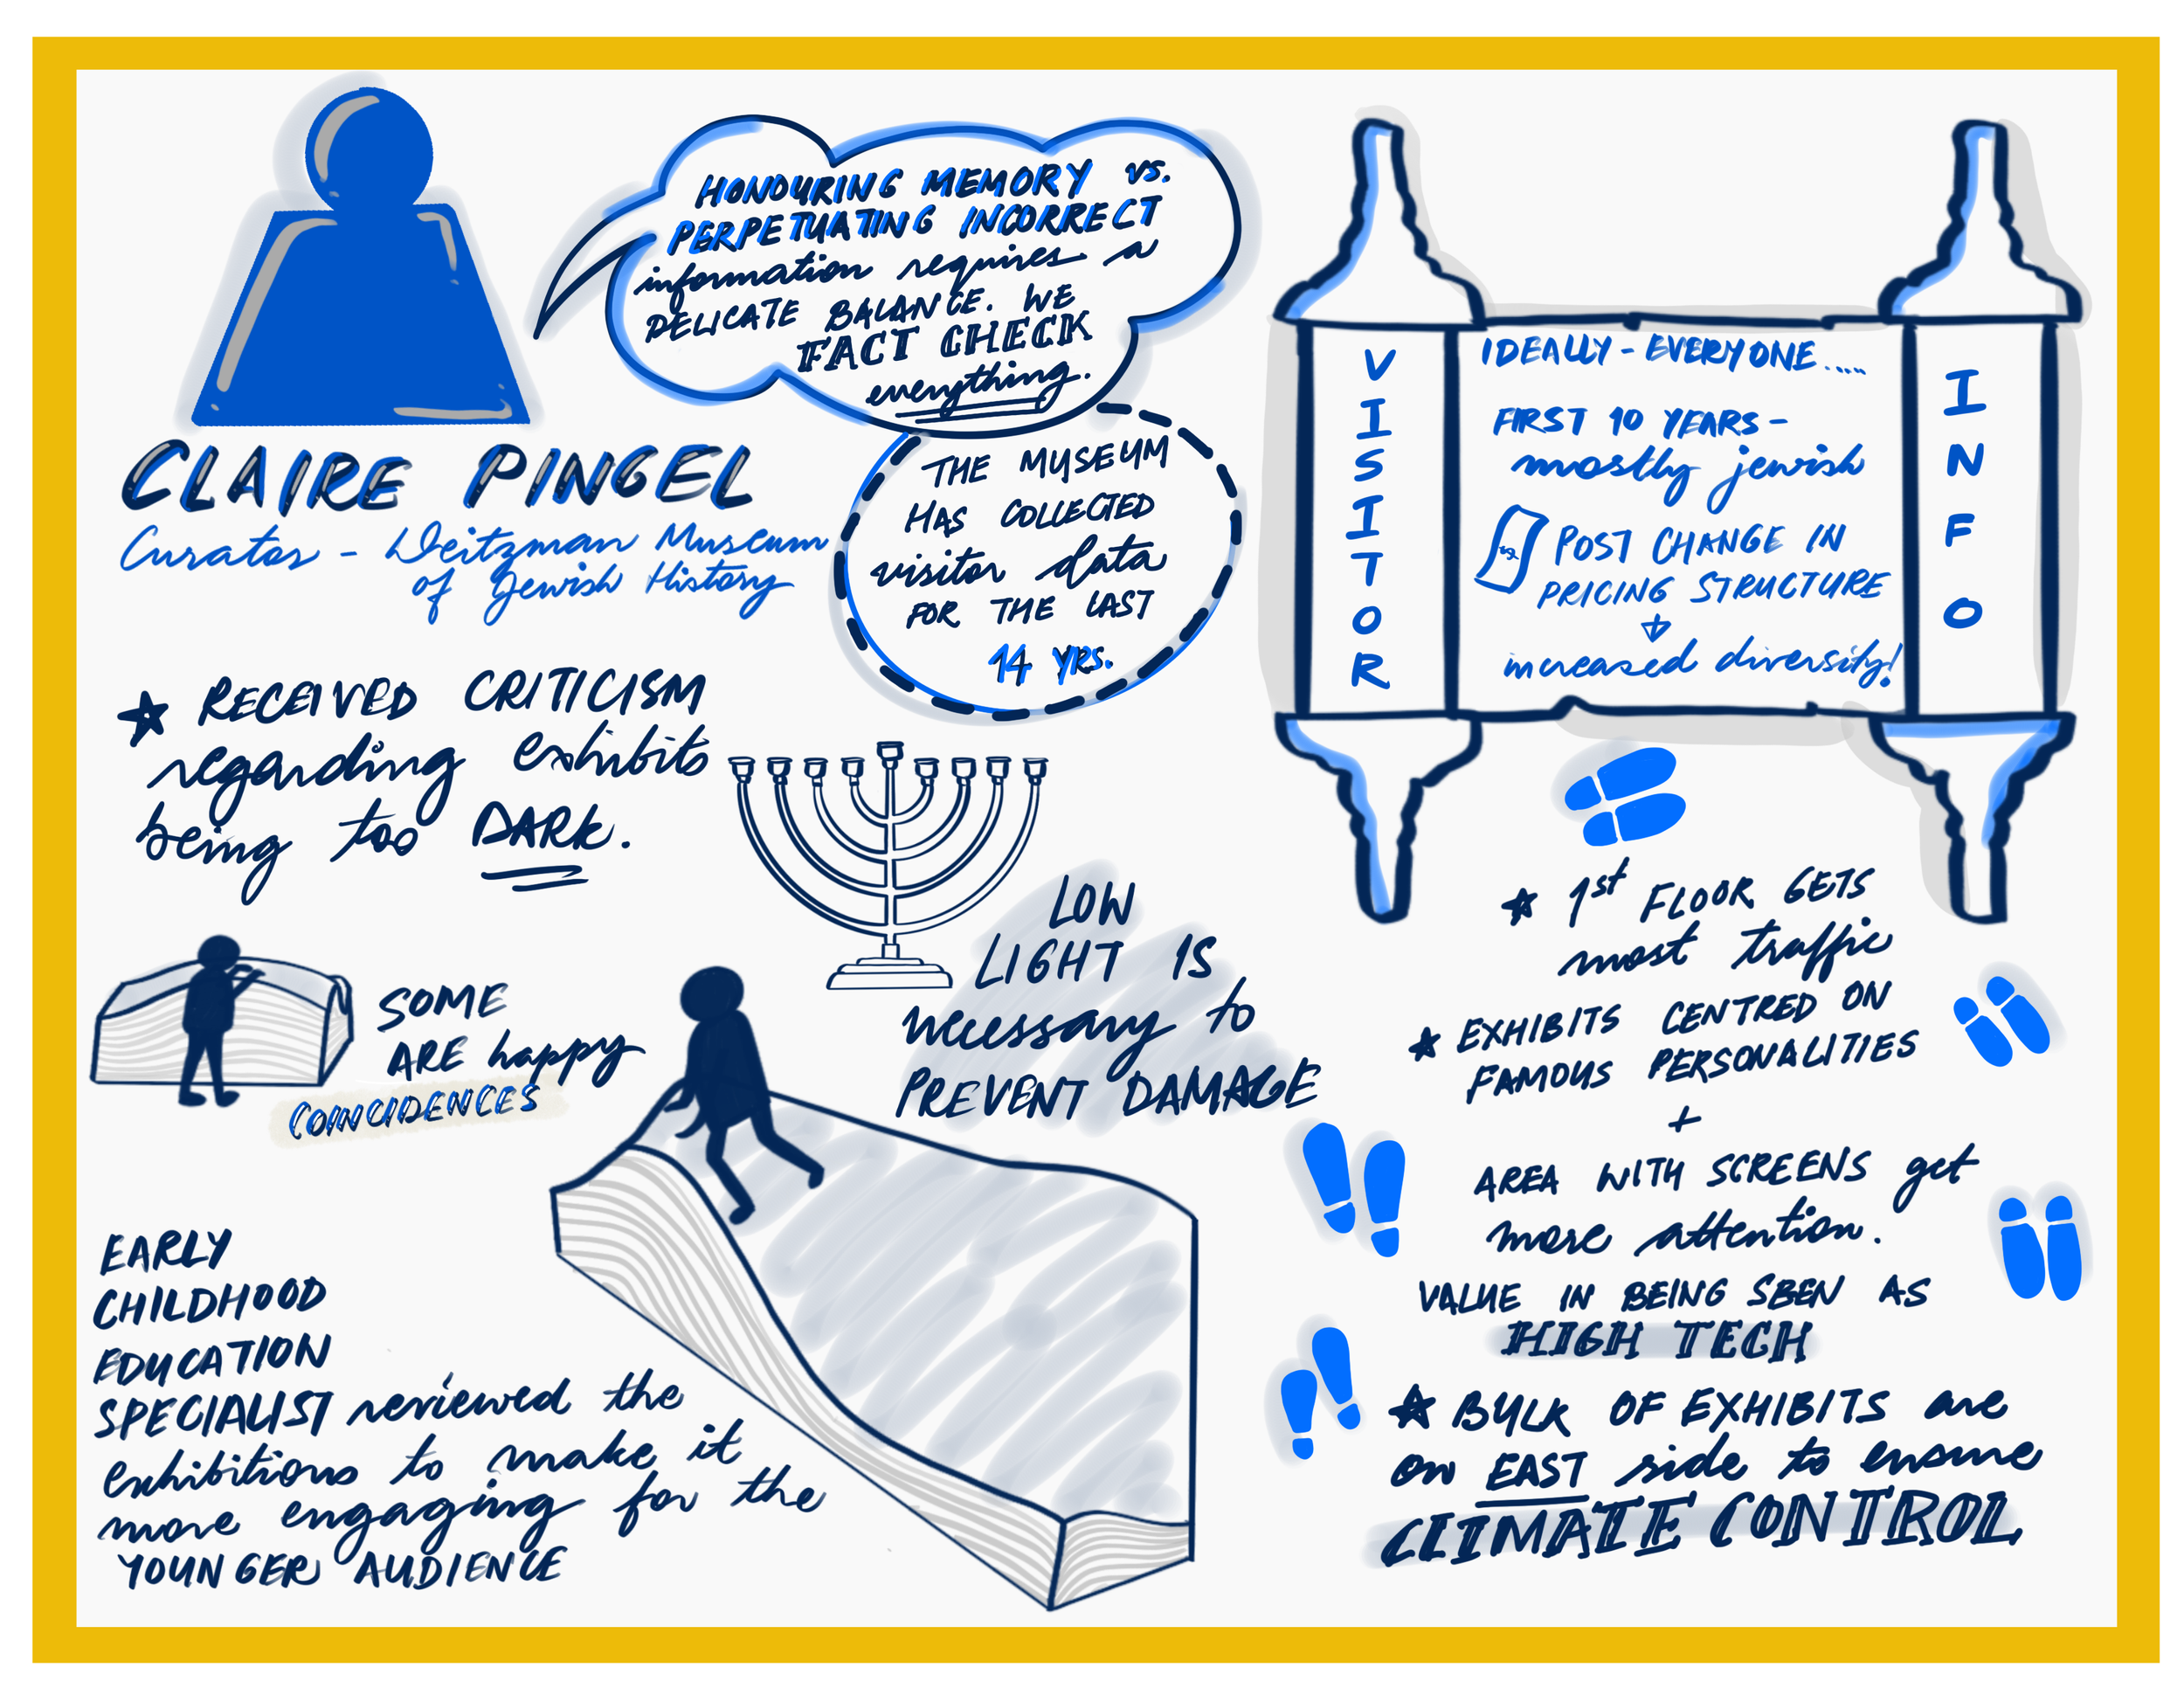 HONOURING MEMORY vs.
PERPETUATING INCORRECT
information requires a
DELICATE BALANCE. WE
FACT CHECK
everything.
CLAIRE PINGEL
Curator - Weitzman Museum
of Jewish History
THE MUSEUM
HAS COLLECTED
visitor data
FOR THE LAST
14 YRS.
VISITOR
IDEALLY - EVERYONE.....
FIRST 10 YEARS -
mostly jewish
POST CHANGE IN
PRICING STRUCTURE
increased diversity!
INFO
RECEIVED CRITICISM
regarding exhibits
being too DARK.
LOW
LIGHT IS
necessary to
PREVENT DAMAGE
SOME
ARE happy
COINCIDENCES
EARLY
CHILDHOOD
EDUCATION
SPECIALIST reviewed the
exhibitions to make it
more engaging for the
YOUNGER AUDIENCE
1st FLOOR GETS
most traffic
EXHIBITS CENTRED ON
FAMOUS PERSONALITIES
+
AREA WITH SCREENS get
more attention.
VALUE IN BEING SEEN AS
HIGH TECH
BULK OF EXHIBITS are
on EAST side to ensure
CLIMATE CONTROL